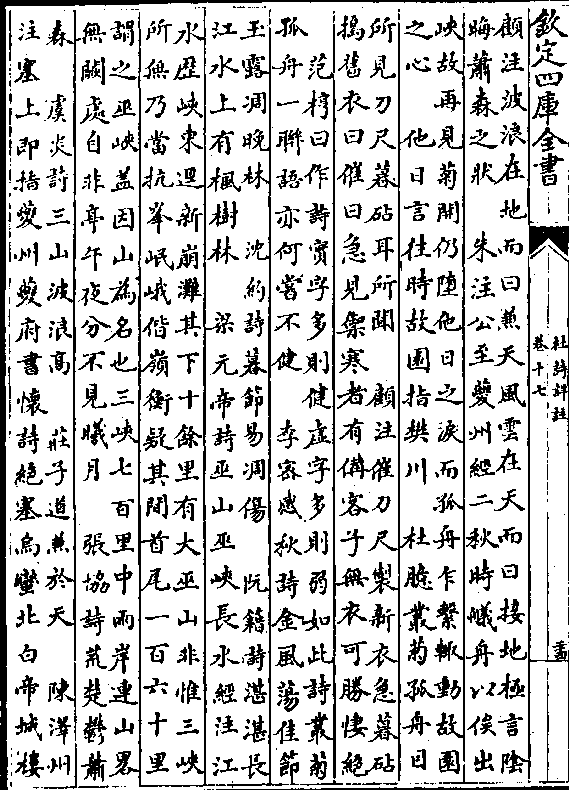 欽定四庫全書
杜詩詳註
卷十七
顧注波浪在地而曰兼天風雲在天而曰接地極言陰
晦蕭森之狀　朱注公至夔州經二秋時艤舟以俟出
峽故再見菊開仍墮他日之淚而孤舟乍繫輒動故園
之心　他日言往時故園指樊川　杜臆叢菊孤舟目
所見刀尺暮砧耳所聞　顧注催刀尺製新衣急暮砧
搗舊衣曰催曰急見禦寒者有備客子無衣可勝悽絶
　范梈曰作詩實字多則健虚字多則弱如此詩叢菊
孤舟一聯語亦何嘗不健　李密感秋詩金風蕩佳節
玉露凋晚林　沈約詩暮節易凋傷　阮籍詩湛湛長
江水上有楓樹林　梁元帝詩巫山巫峽長水經注江
水歴峽東逕新崩灘其下十餘里有大巫山非惟三峽
所無乃當抗峯岷峨偕嶺衡疑其間首尾一百六十里
謂之巫峽蓋因山為名也三峽七百里中兩岸連山畧
無闕處自非亭午夜分不見曦月　張協詩荒楚鬱蕭
森　虞炎詩三山波浪高　莊子道兼於天　陳澤州
注塞上即指夔州夔府書懷詩絶塞烏蠻北白帝城樓